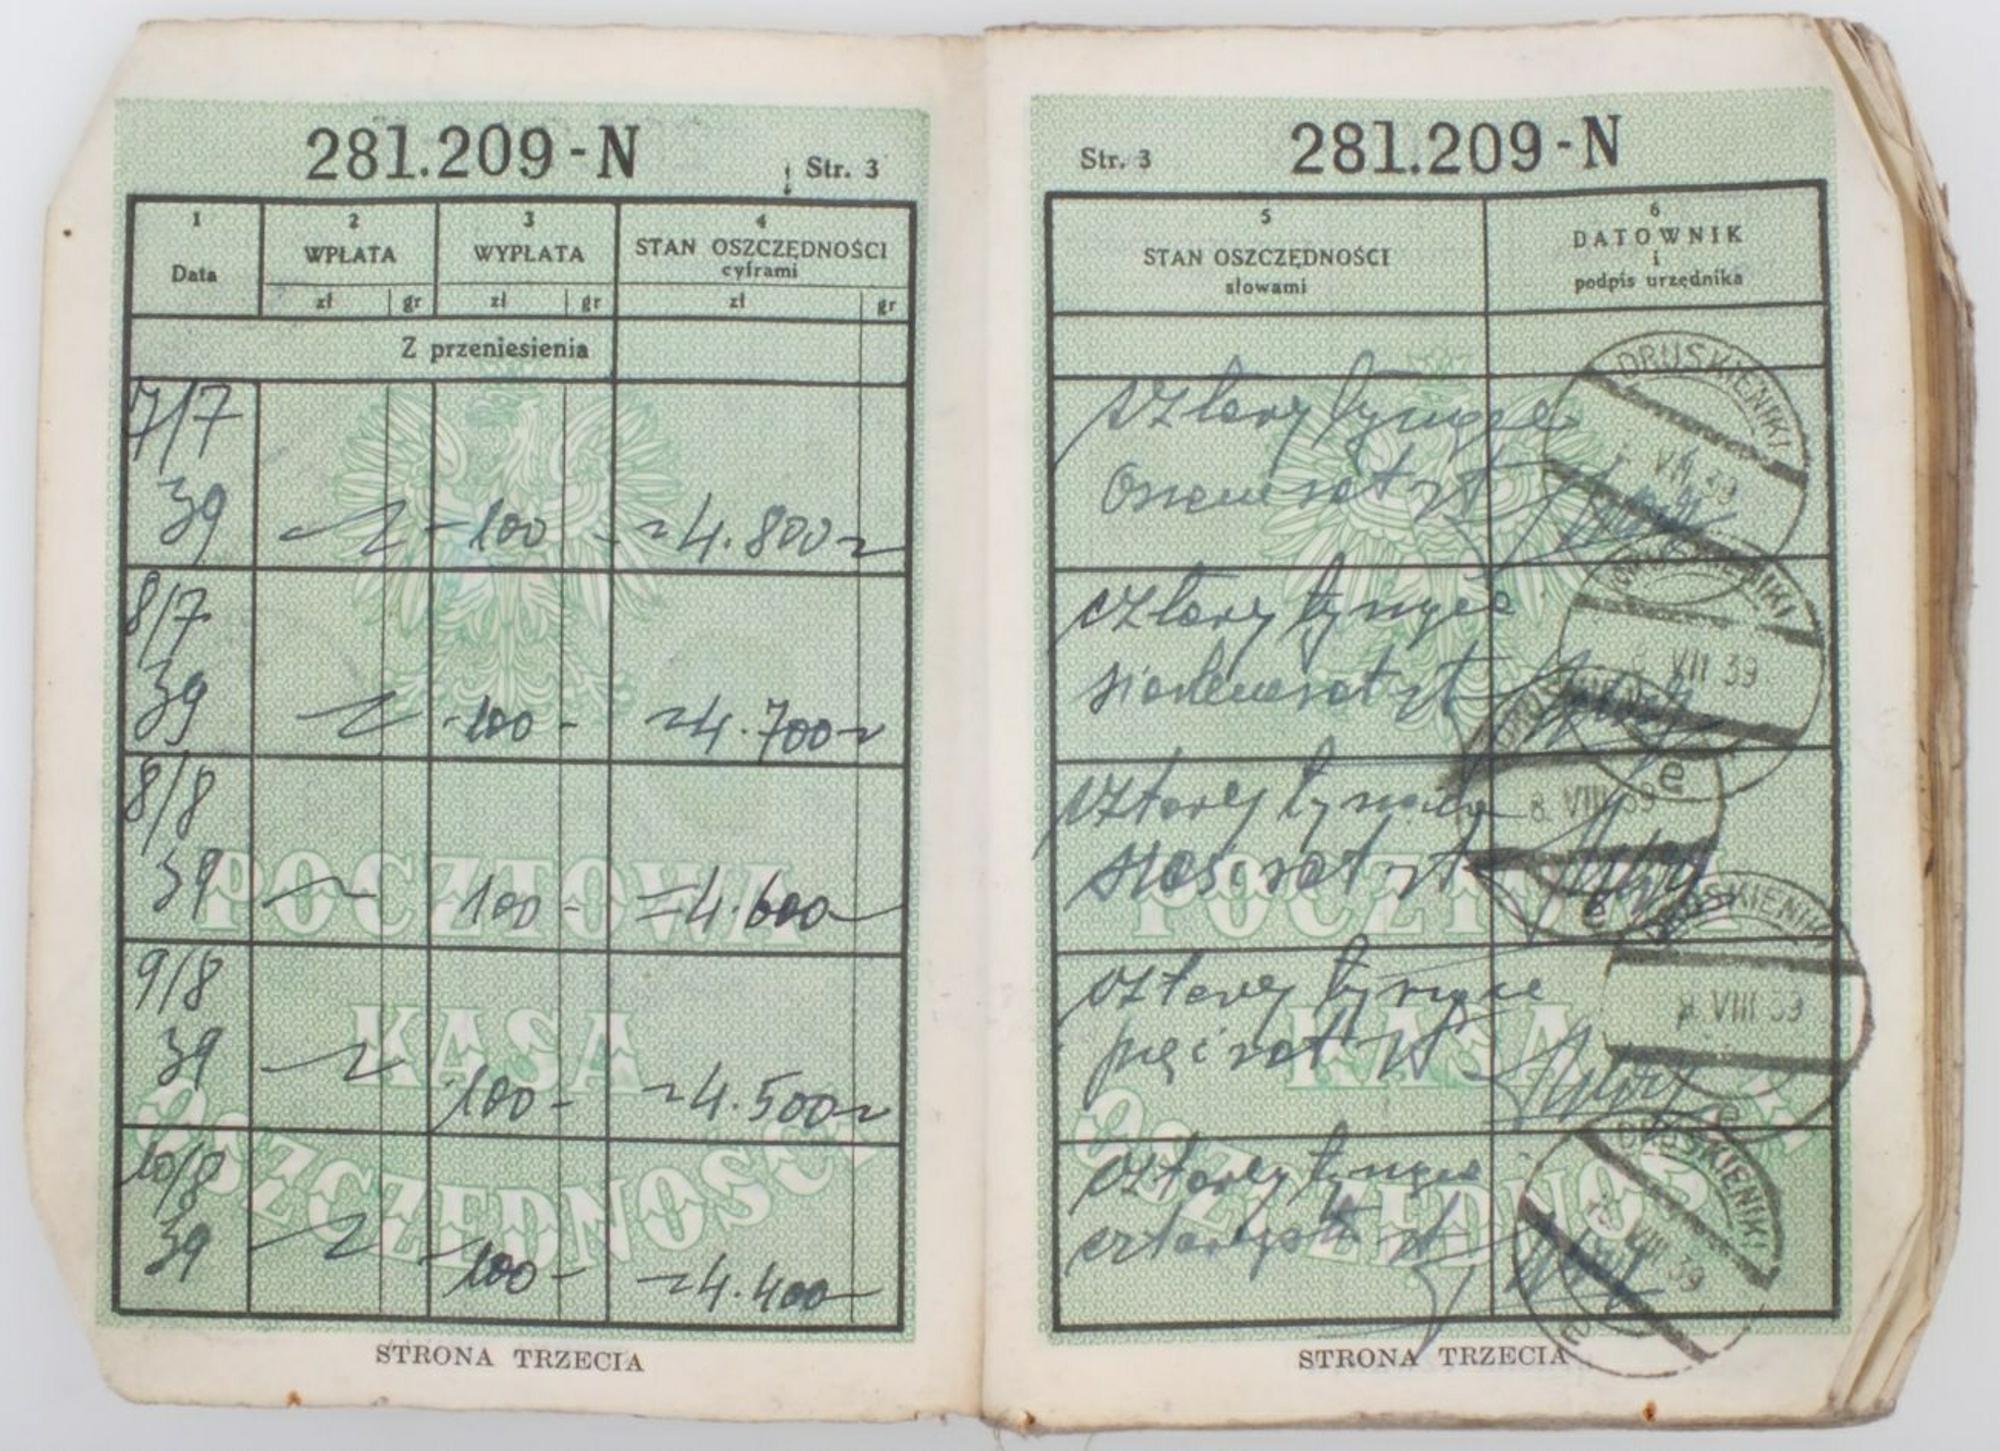 281.209-N
Str. 3
1
Data
2
WPŁATA
zł gr
3
WYPŁATA
zł gr
4
STAN OSZCZĘDNOŚCI
cyframi
zł gr
Z przeniesienia
7/7
39
-100-
4.800
8/7
39
-100-
4.700
8/8
39
100-
=4.600
9/8
39
100-
4.500
10/8
39
-100-
4.400
POCZTOWA
KASA
OSZCZĘDNOŚCI
STRONA TRZECIA
Str. 3
281.209-N
5
STAN OSZCZĘDNOŚCI
słowami
6
DATOWNIK
i
podpis urzędnika
cztery tysiące
osiemset zł
DRUSKIENIKI
VII 39
cztery tysiące
siedemset zł
8. VII 39
e
cztery tysiące
sześćset zł
8. VIII 39
e
cztery tysiące
pięćset zł
DRUSKIENIKI
VIII 39
e
cztery tysiące
czterysta zł
DRUSKIENIKI
VIII 39
POCZTOWA
KASA
STRONA TRZECIA